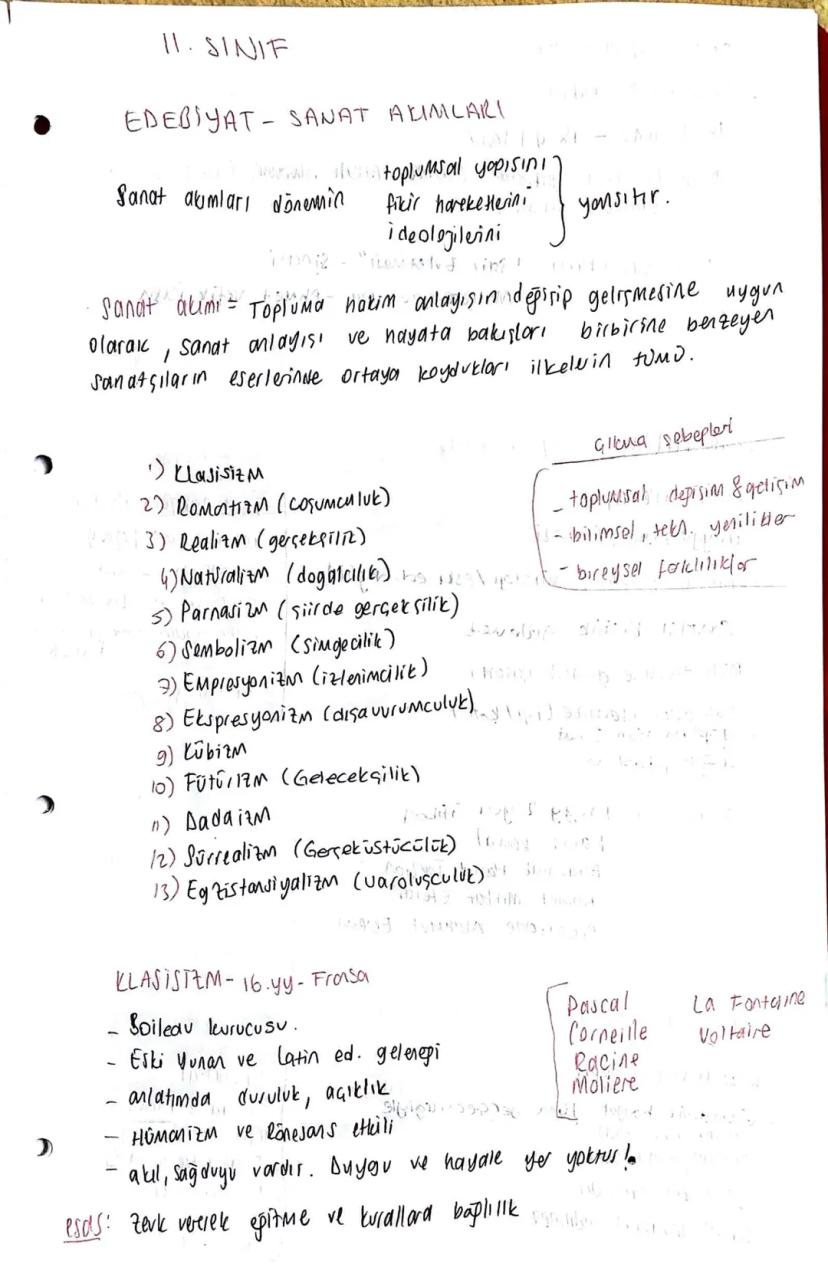 11. SINIF
EDEBİYAT - SANAT AKIMLARI
Sanat akımları dönemin
toplumsal yapısını
fikir hareketlerini
ideolojilerini
yansıtır.
Sanat akımı = Topluma hakim anlayışın değişip gelişmesine uygun
olarak, sanat anlayışı ve hayata bakışları birbirine benzeyen
sanatçıların eserlerinde ortaya koydukları ilkelerin tümü.
Çıkma sebepleri
- toplumsal değişim & gelişim
- bilimsel, tekn. yenilikler
- bireysel farklılıklar
1) Klasisizm
2) Romantizm (coşumculuk)
3) Realizm (gerçekçilik)
4) Natüralizm (doğalcılık)
5) Parnasizm (şiirde gerçekçilik)
6) Sembolizm (simgecilik)
7) Empresyonizm (izlenimcilik)
8) Ekspresyonizm (dışavurumculuk)
9) Kübizm
10) Fütürizm (Gelecekçilik)
11) Dadaizm
12) Sürrealizm (Gerçeküstücülük)
13) Egzistansiyalizm (varoluşculuk)
KLASİSİZM - 16.yy - Fransa
- Boileau kurucusu.
- Eski Yunan ve Latin ed. geleneği
- anlatımda duruluk, açıklık
- Hümanizm ve Rönesans etkili
- akıl, sağduyu vardır. Duygu ve hayale yer yoktur!
esas: zevk vererek eğitme ve kurallara bağlılık
Pascal La Fontaine
Corneille Voltaire
Racine
Moliere